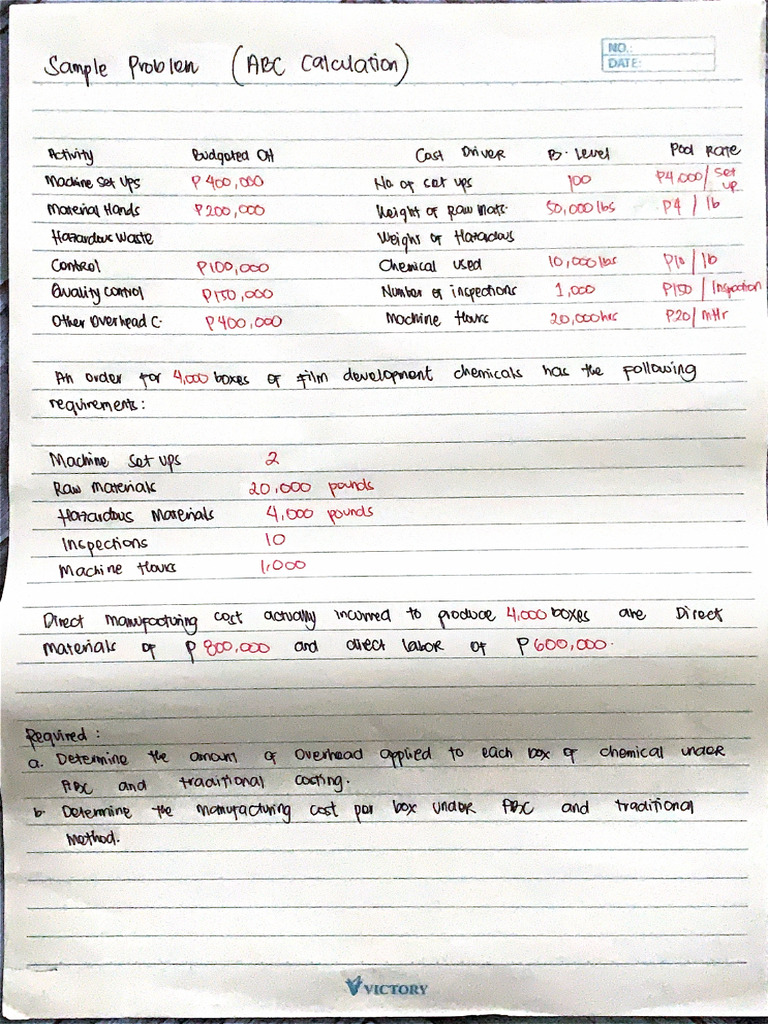 Sample Problem (ABC Calculation)
NO.:
DATE:
Activity Budgeted OH Cost Driver B. Level Pool Rate
Machine Set Ups ₱400,000 No. of set ups 100 ₱4,000/ set up
Material Hands ₱200,000 Weight of Raw Mats. 50,000 lbs ₱4 / lb
Hazardous Waste Weight of Hazardous
Control ₱100,000 Chemical used 10,000 lbs ₱10 / lb
Quality Control ₱150,000 Number of inspections 1,000 ₱150 / Inspection
Other Overhead C. ₱400,000 Machine Hours 20,000 hrs ₱20/ mHr
An order for 4,000 boxes of film development chemicals has the following
requirements:
Machine Set ups 2
Raw Materials 20,000 pounds
Hazardous Materials 4,000 pounds
Inspections 10
Machine Hours 1,000
Direct manufacturing cost actually incurred to produce 4,000 boxes are Direct
materials of ₱ 800,000 and direct labor of ₱ 600,000.
Required :
a. Determine the amount of overhead applied to each box of chemical under
ABC and traditional costing.
b. Determine the manufacturing cost per box under ABC and traditional
method.
VICTORY